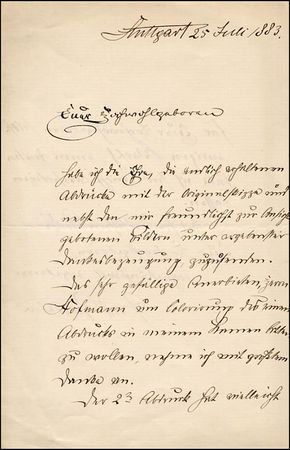 Stuttgart 25 Juli 1883.
Euer Hochwohlgeboren
habe ich die Ehre, die endlich erhaltenen
Abdrücke mit der Originalskizze und
nebst den mir freundlichst zur Ansicht
gebotenen Bildern unter ergebenster
Dankesbezeugung zuzusenden.
Das sehr gefällige Anerbieten, Herrn
Hofmann um Colorirung des einen
Abdrucks in meinem Namen bitten
zu wollen, nehme ich mit größtem
Danke an.
Der 23 Abdruck hat vielleicht